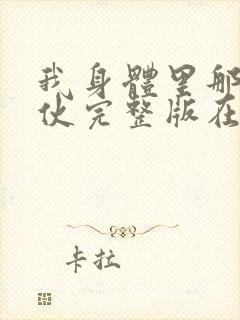 我身體里那
伙完整版在
卡拉